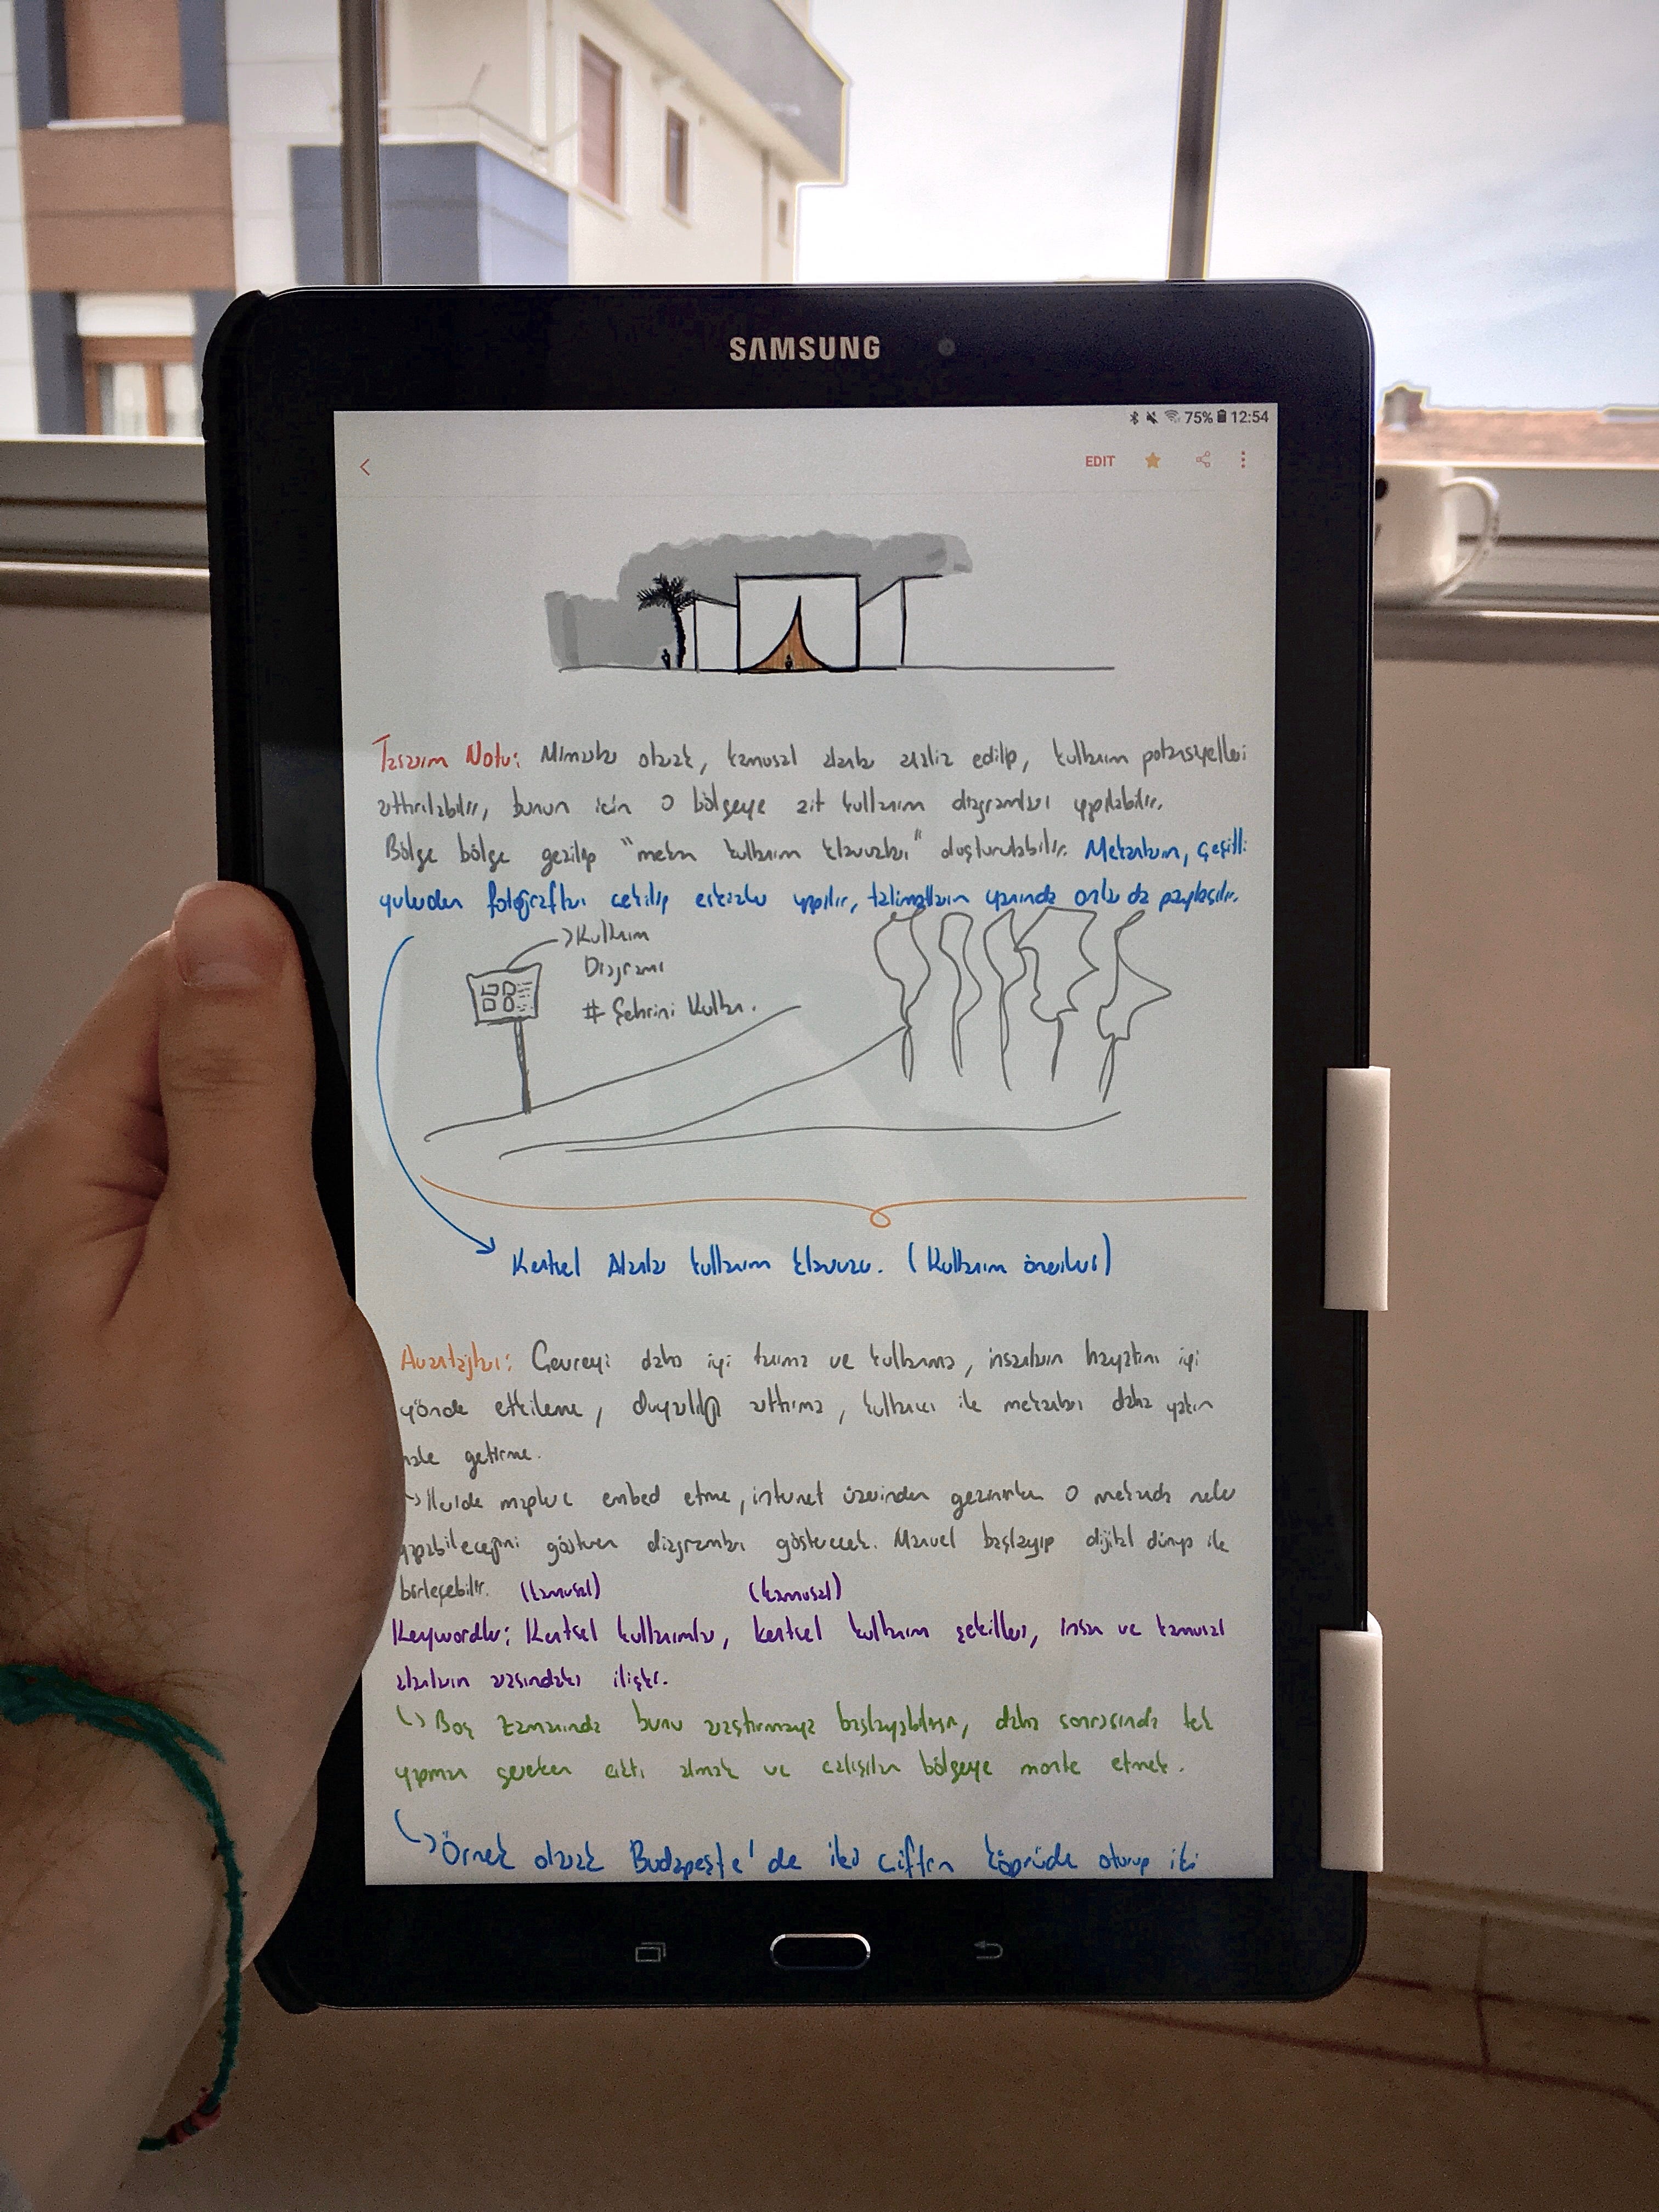 SAMSUNG
75% 12:54
EDIT
Tasarım Notu: Mimarlar olarak, kamusal alanlar analiz edilip, kullanım potansiyelleri
arttırılabilir, bunun için o bölgeye ait kullanım diagramları yapılabilir.
Bölge bölge gezilip "mekan kullanım klavuzları" oluşturulabilir. Mekanların, çeşitli
yerlerden fotoğrafları çekilip eskizler yapılır, talimatların yanında onlar da paylaşılır.
Kullanım
Diagramı
# Şehrini Kullan.
Kentsel Alanlar kullanım klavuzu. (Kullanım önerileri)
Avantajları: Çevreyi daha iyi tanıma ve kullanma, insanların hayatını iyi
yönde etkileme, duyarlılığı arttırma, kullanıcı ile mekanları daha yakın
hale getirme.
İleride maplere embed etme, internet üzerinden gezinirken o mekanda neler
yapabileceğini gösteren diagramları gösterecek. Manuel başlayıp dijital dünya ile
birleşebilir. (kamusal) (kamusal)
Keywordler: Kentsel kullanımlar, kentsel kullanım şekilleri, insan ve kamusal
alanların arasındaki ilişki.
Boş zamanında bunu araştırmaya başlayabilirsin, daha sonrasında tek
yapman gereken çıktı almak ve çalışılan bölgeye monte etmek.
Örnek olarak Budapeşte'de iki çiftin köprüde oturup iki